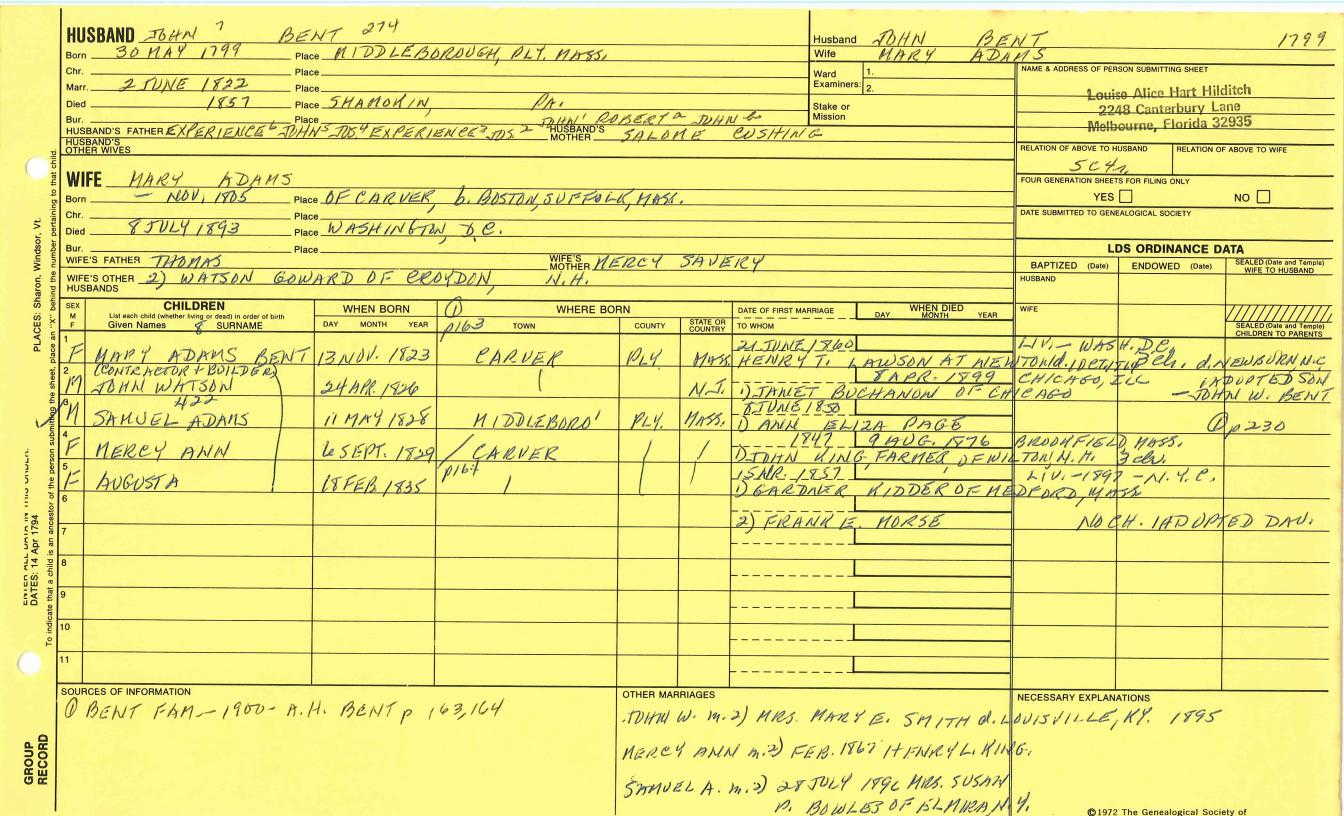 HUSBAND JOHN 7 BENT 274
Born 30 MAY 1799 Place MIDDLEBOROUGH, PLY. MASS.
Chr. Place
Marr. 2 JUNE 1822 Place
Died 1857 Place SHAMOKIN, PA.
Bur. Place JOHN1 ROBERTa JOHNb
HUSBAND'S FATHER EXPERIENCE6 JOHN5 JOS4 EXPERIENCE3 JOS2 HUSBAND'S MOTHER SALOME CUSHING
HUSBAND'S OTHER WIVES
Husband JOHN BENT 1799
Wife MARY ADAMS
Ward Examiners: 1.
2.
Stake or Mission
NAME & ADDRESS OF PERSON SUBMITTING SHEET
Louise Alice Hart Hilditch
2248 Canterbury Lane
Melbourne, Florida 32935
RELATION OF ABOVE TO HUSBAND RELATION OF ABOVE TO WIFE
5C4r
FOUR GENERATION SHEETS FOR FILING ONLY
YES NO
DATE SUBMITTED TO GENEALOGICAL SOCIETY
WIFE MARY ADAMS
Born — NOV. 1805 Place OF CARVER, b. BOSTON, SUFFOLK, MASS.
Chr. Place
Died 8 JULY 1893 Place WASHINGTON, D.C.
Bur. Place
WIFE'S FATHER THOMAS WIFE'S MOTHER MERCY SAVERY
WIFE'S OTHER HUSBANDS 2) WATSON GOWARD OF CROYDON, N.H.
LDS ORDINANCE DATA
BAPTIZED (Date) ENDOWED (Date) SEALED (Date and Temple) WIFE TO HUSBAND
HUSBAND
WIFE
SEALED (Date and Temple) CHILDREN TO PARENTS
SEX M F CHILDREN WHEN BORN ① WHERE BORN DATE OF FIRST MARRIAGE WHEN DIED
List each child (whether living or dead) in order of birth DAY MONTH YEAR
Given Names 8 SURNAME DAY MONTH YEAR p163 TOWN COUNTY STATE OR COUNTRY TO WHOM
1 21 JUNE 1860 LIV. — WASH. DC
F MARY ADAMS BENT 13 NOV. 1823 CARVER PLY. MASS HENRY T. LAWSON AT NEWTON 2 ch. d. NEWBURN N.C
2 (CONTRACTOR + BUILDER) 8 APR. 1899 CHICAGO, ILL 1 ADOPTED SON
M JOHN WATSON 24 APR. 1826 N.J. 1) JANET BUCHANON OF CHICAGO — JOHN W. BENT
3 422 8 JUNE 1850
M SAMUEL ADAMS 11 MAY 1828 MIDDLEBORO' PLY. MASS. 1) ANN ELIZA PAGE ① p230
4 1847 9 AUG. 1876 BROOKFIELD, MASS.
F MERCY ANN 6 SEPT. 1829 CARVER 1) JOHN KING, FARMER, OF WILTON N.H. 3 ch.
5 p164 1857 LIV. — 1897 — N.Y.C.
F AUGUSTA 18 FEB 1835 1) GARDNER KIDDER OF MEDFORD, MASS
6
2) FRANK E. MORSE NO CH. 1 ADOPTED DAU.
7
8
9
10
11
SOURCES OF INFORMATION
① BENT FAM — 1900 — A.H. BENT p 163, 164
OTHER MARRIAGES
JOHN W. m. 2) MRS. MARY E. SMITH d. LOUISVILLE, KY. 1895
MERCY ANN m. 2) FEB. 1867 HENRY L. KING.
SAMUEL A. m. 2) 28 JULY 1896 MRS. SUSAN
P. BOWLES OF ELMIRA, N.Y.
NECESSARY EXPLANATIONS
©1972 The Genealogical Society of
PLACES: Sharon, Windsor, Vt.
ENTER ALL DATA IN THIS ORDER:
DATES: 14 Apr 1794
To indicate that a child is an ancestor of the person submitting the sheet, place an "X" behind the number pertaining to that child.
GROUP RECORD